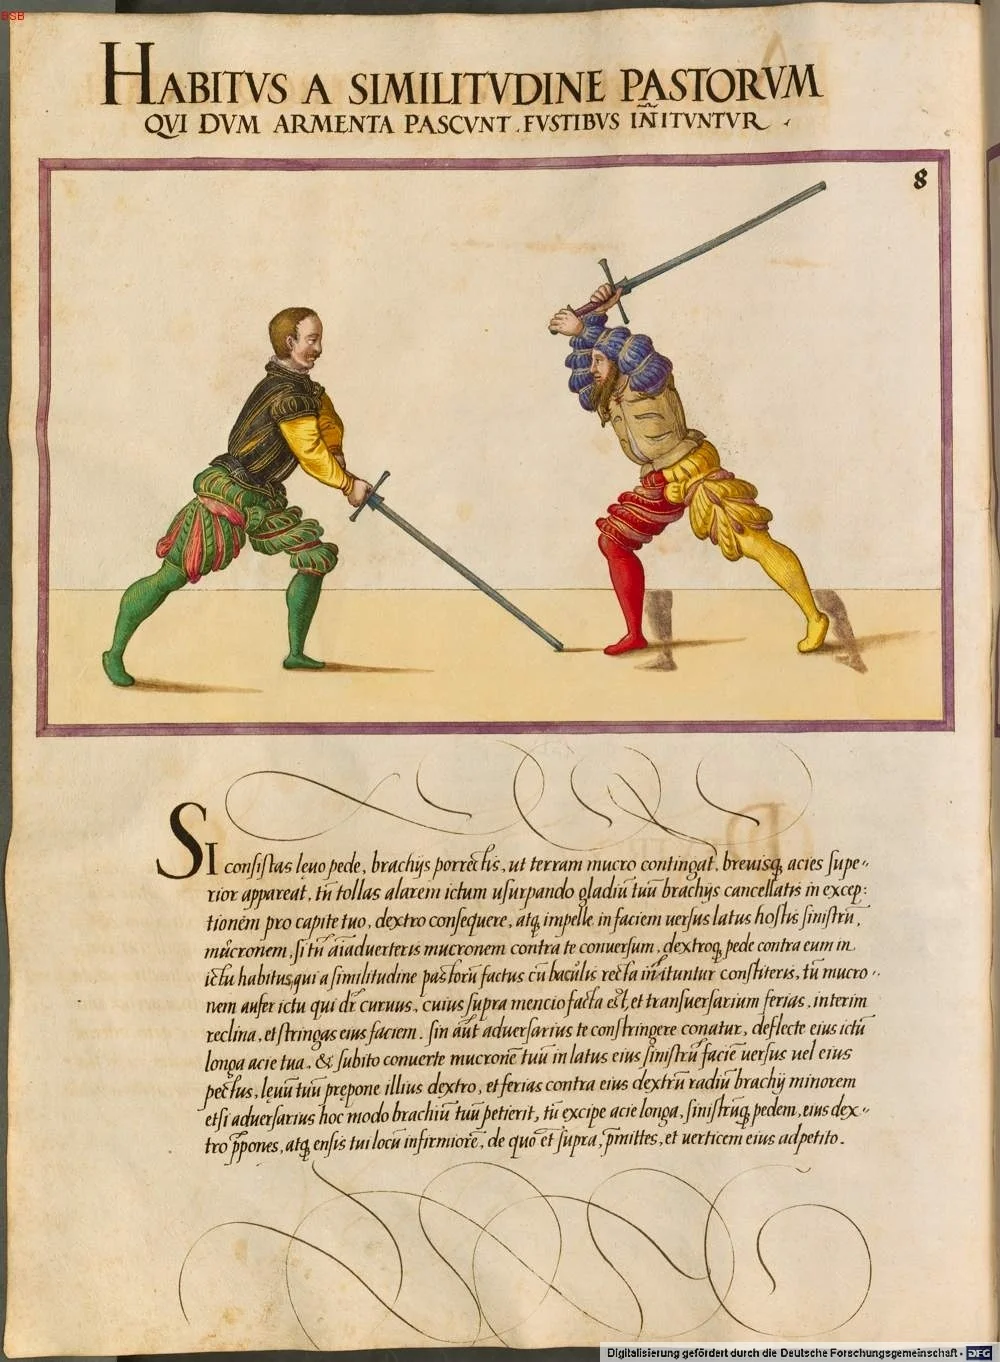 BSB
HABITVS A SIMILITVDINE PASTORVM
QVI DVM ARMENTA PASCVNT . FVSTIBVS IÑITVNTVR .
8
SI consistas lęuo pede, brachijs porrectis, ut terram mucro contingat, breuisq, acies supe-
rior appareat, tū tollas alarem ictum usurpando gladiū tuū brachijs cancellatis in excep:
tionem pro capite tuo, dextro consequere, atq, impelle in faciem uersus latus hostis sinistrū,
mucronem, si tū aīaduerteris mucronem contra te conuersum, dextroq, pede contra eum in
ictu habitus, qui a similitudine pastorū factus cū baculis recta iñituntur constiteris, tū mucro-
nem aufer ictu qui dr̄ curuus, cuius supra mencio facta est, et transuersarium ferias, interim
reclina, et stringas eius faciem. sin aūt aduersarius te constringere conatur, deflecte eius ictū
longa acie tua, & subito conuerte mucronē tuū in latus eius sinistrū faciē uersus uel eius
pectus, lęuū tuū prepone illius dextro, et ferias contra eius dextrū radiū brachij minorem
etsi aduersarius hoc modo brachiū tuū petierit, tū excipe acie longa, sinistrūq, pedem, eius dex-
tro p̄pones, atq, ensis tui locū infirmiorē, de quo et supra, p̄mittes, et uerticem eius adpetito.
Digitalisierung gefördert durch die Deutsche Forschungsgemeinschaft - DFG